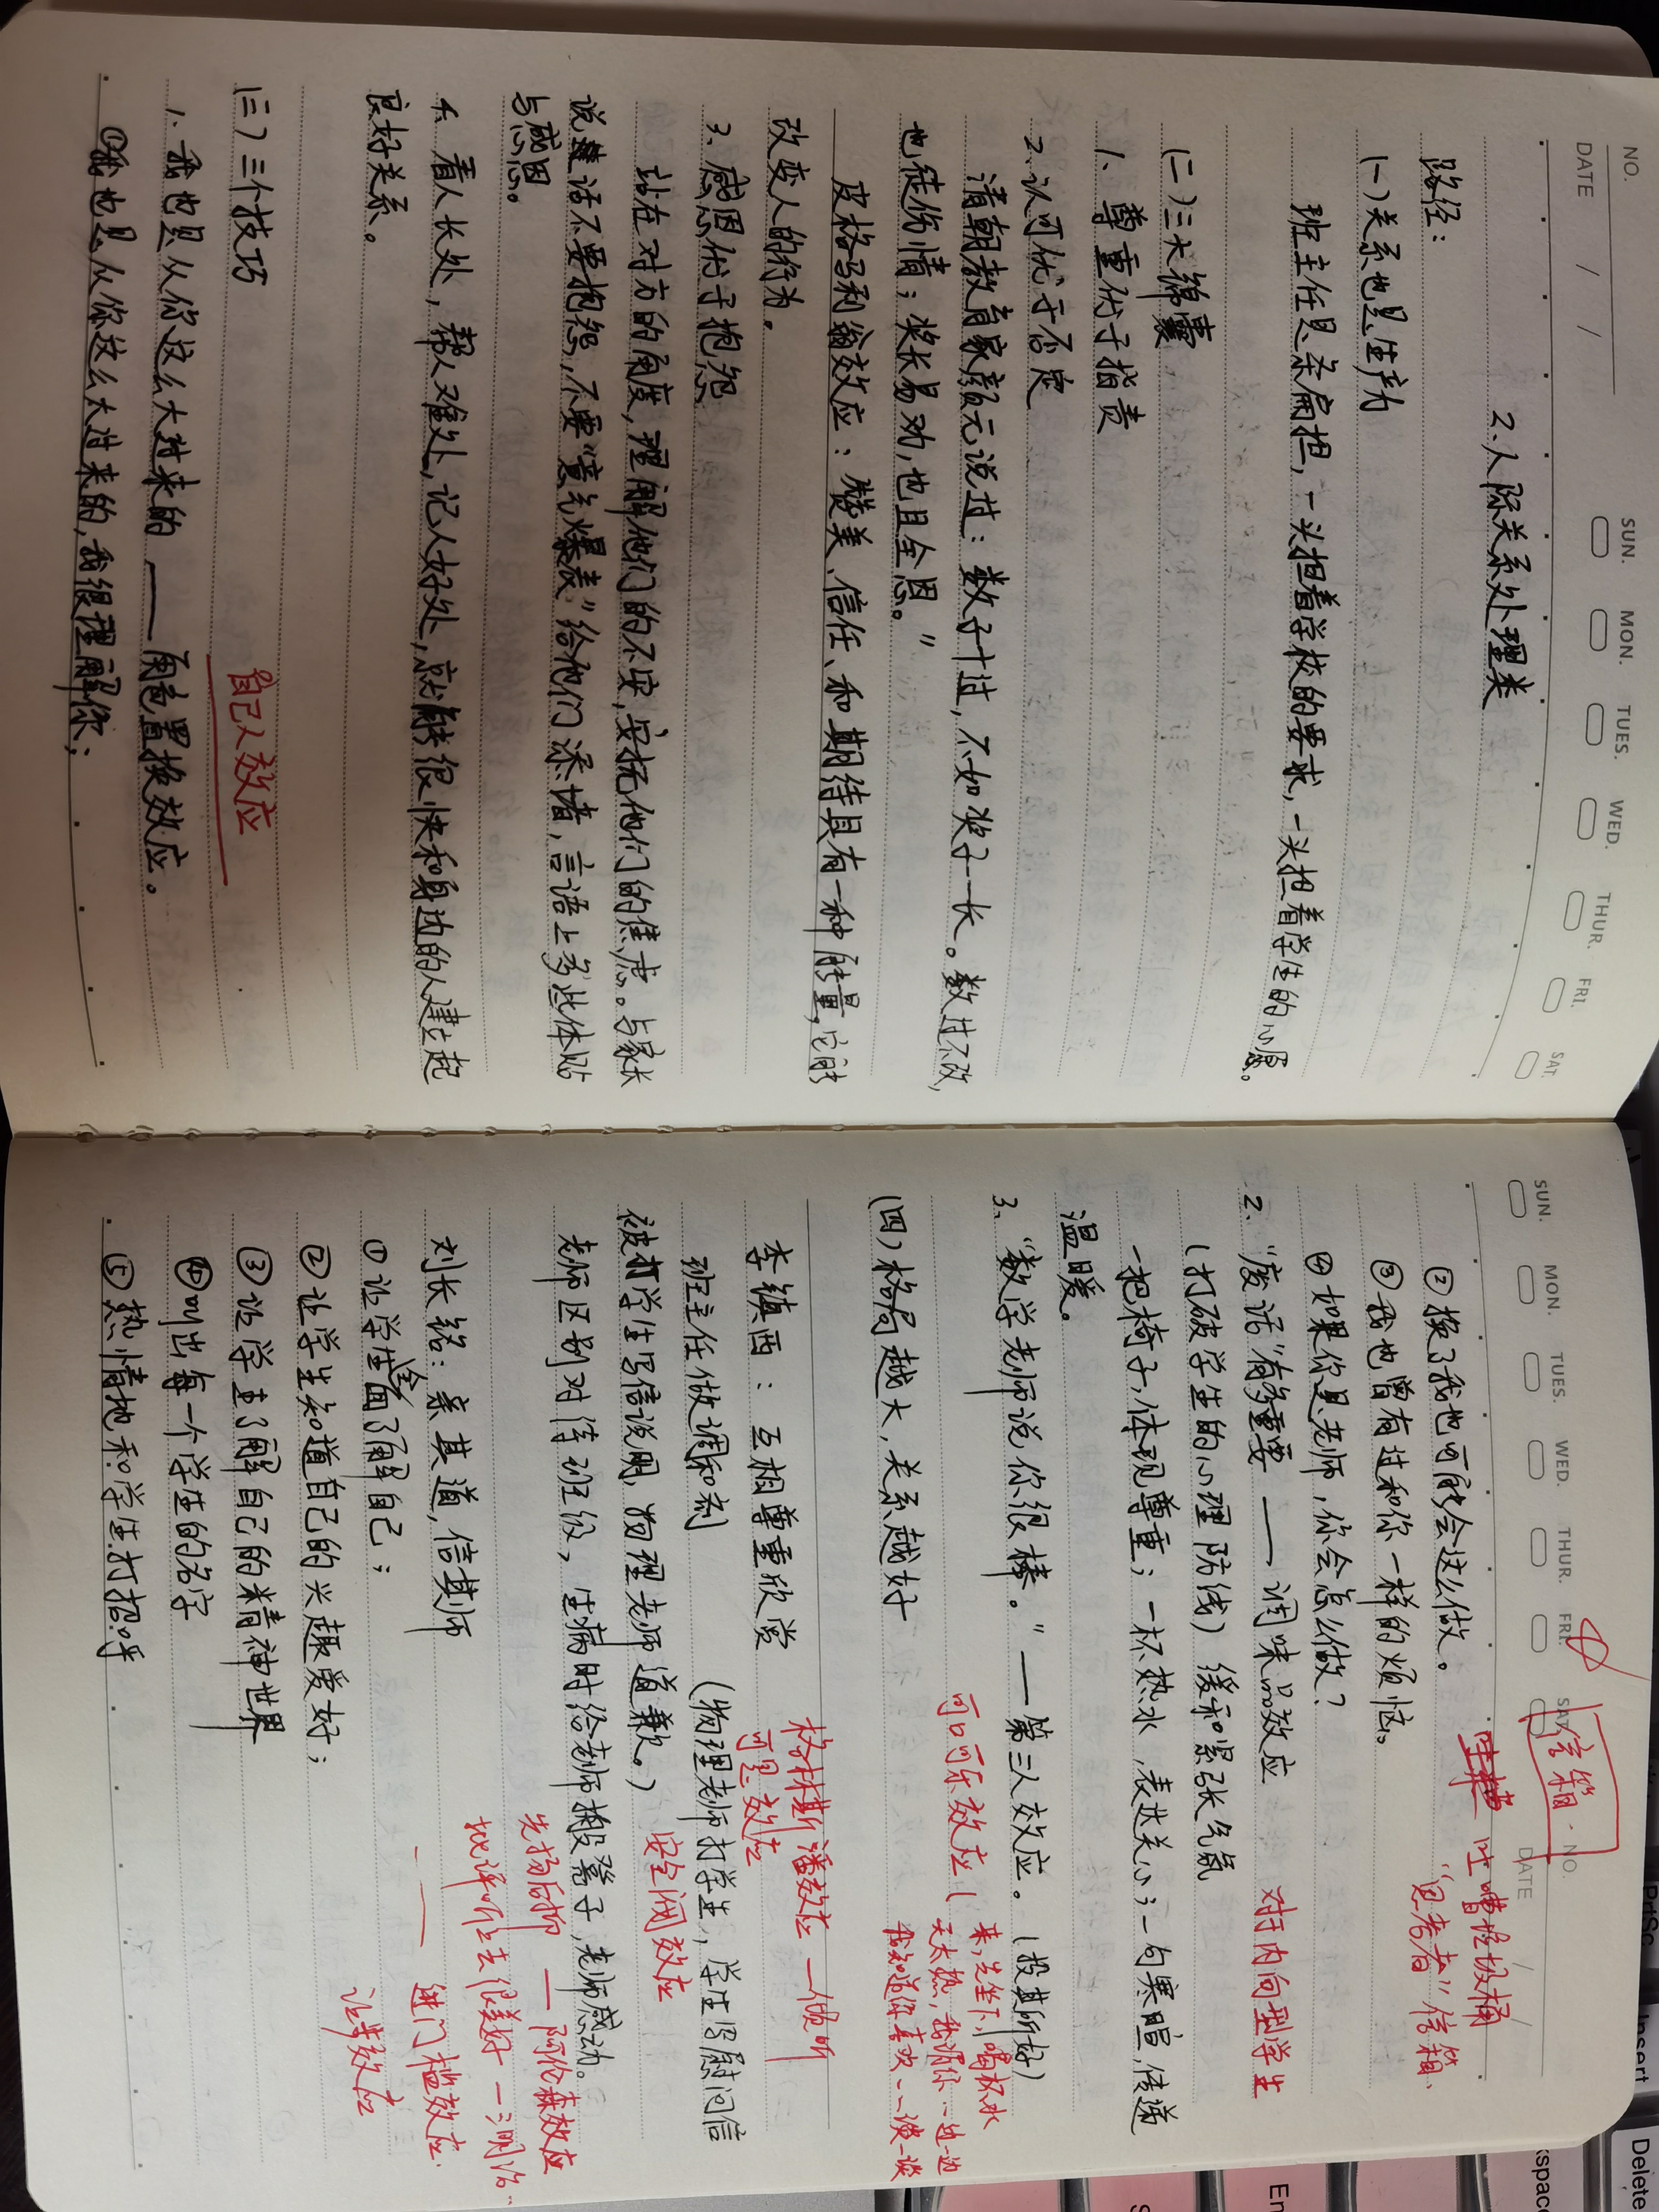 NO.
DATE / /
SUN. MON. TUES. WED. THUR. FRI. SAT.
2.人际关系处理类
路径：
(一)关系也是生产力
班主任是条扁担，一头担着学校的要求，一头担着学生的心愿。
(二)三大锦囊
1、尊重优于指责
2、认可优于否定
清朝教育家颜元说过：数子十过，不如奖子一长。数过不改，
也徒伤情；奖长易劝，也且全恩。”
皮格马利翁效应：赞美、信任、和期待具有一种能量，它能
改变人的行为。
3、感恩优于抱怨
站在对方的角度，理解他们的不安，安抚他们的焦虑。与家长
说话不要抱怨，不要“意气爆表”给他们添堵，言语上多些体贴
与感恩。
4. 看人长处，帮人难处，记人好处，就能很快和身边的人建立起
良好关系。
(三)三个技巧
自己人效应
1、我也是从你这么大过来的——角色置换效应。
①我也是从你这么大过来的，我很理解你；
SUN. MON. TUES. WED. THUR. FRI. SAT.
NO.
DATE / /
信箱
吐槽垃圾桶
②换了我也可能会这么做。
“思考者”信箱、
③我也曾有过和你一样的烦恼。
④如果你是老师，你会怎么做？
2、“废话”有多重要——调味品效应
对于内向型学生
(打破学生的心理防线)缓和紧张气氛
一把椅子，体现尊重；一杯热水，表达关心；一句寒暄，传递
温暖。
3、“数学老师说你很棒。”——第三人效应。(投其所好)
可口可乐效应(
来，先坐下，喝杯水
天太热，我们一边
我知道你喜欢——谈一谈
(四)格局越大，关系越好
格林斯潘效应——倾听
可是效应
李镇西：互相尊重欣赏
班主任做调和剂(物理老师打学生，学生写慰问信
被打学生写信说明，物理老师道歉。)
安全阀效应
老师区别对待班级，生病时给老师搬凳子，老师感动。
先扬后抑——阿伦森效应
批评听上去很美好——三明治
刘长铭：亲其道，信其师
——进门槛效应
①让学生全面了解自己；
让步效应
②让学生知道自己的兴趣爱好；
③让学生了解自己的精神世界
④叫出每一个学生的名字
⑤热情地和学生打招呼
PrtSc
Insert
Delete
kspace
En